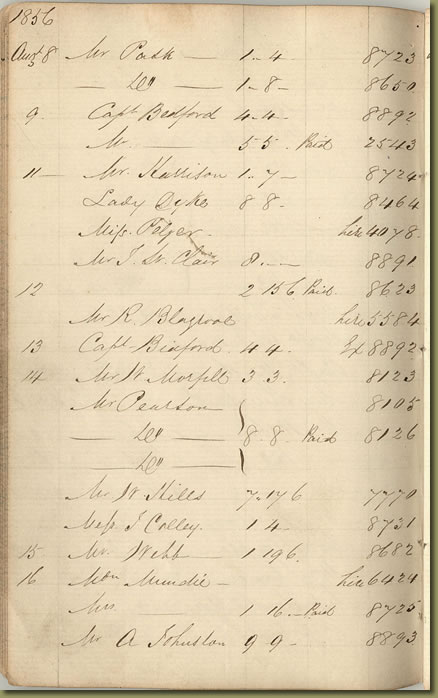 1856
Augt 8 Mr Pask — 1 - 4 - 8723
— Do — 1 - 8 - 8650
9 Capt Bedford 4 - 4 - 8892
Mr — 5 5 . Paid 2543
11 — Mr. Harrison 1 - 7 - 8724
Lady Dyke 8 8 - 8464
Miss - hire 4078
Mr J. St. Clair 8 - — 8891
12 2 15 6 Paid 8623
Mr R. hire 5584
13 Capt Bedford 4 4 . Ex 8892
14 Mr W 3 3 . 8123
Mr Pearson 8105
— Do — 8 . 8 - Paid 8126
— Do —
Mr W. Hills 7 - 17 6 7770
Messrs J Colley. 1 4 - 8731
15 Mr. Webb — 1 19 6. 8682
16 Mdm Mundie - hire 6424
Mrs. — 1 16 - Paid 8725
Mr A Johnston 9 9 - 8893